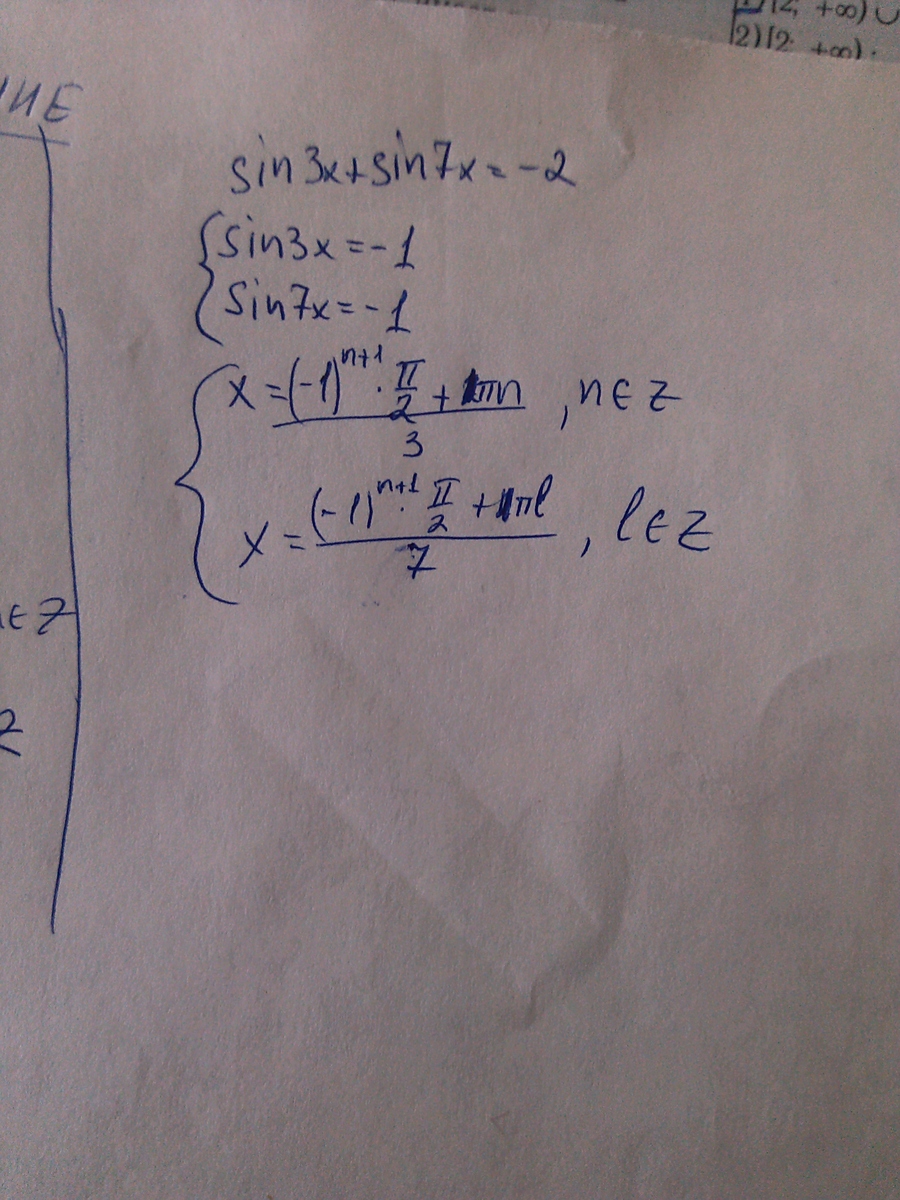 2; +∞) ∪
2) [2; +∞).
ИЕ
sin3x+sin7x=-2
{sin3x=-1
sin7x=-1
{x=((-1)^{n+1}·π/2+πn)/3, n∈Z
x=((-1)^{n+1}·π/2+πl)/7, l∈Z
∈Z